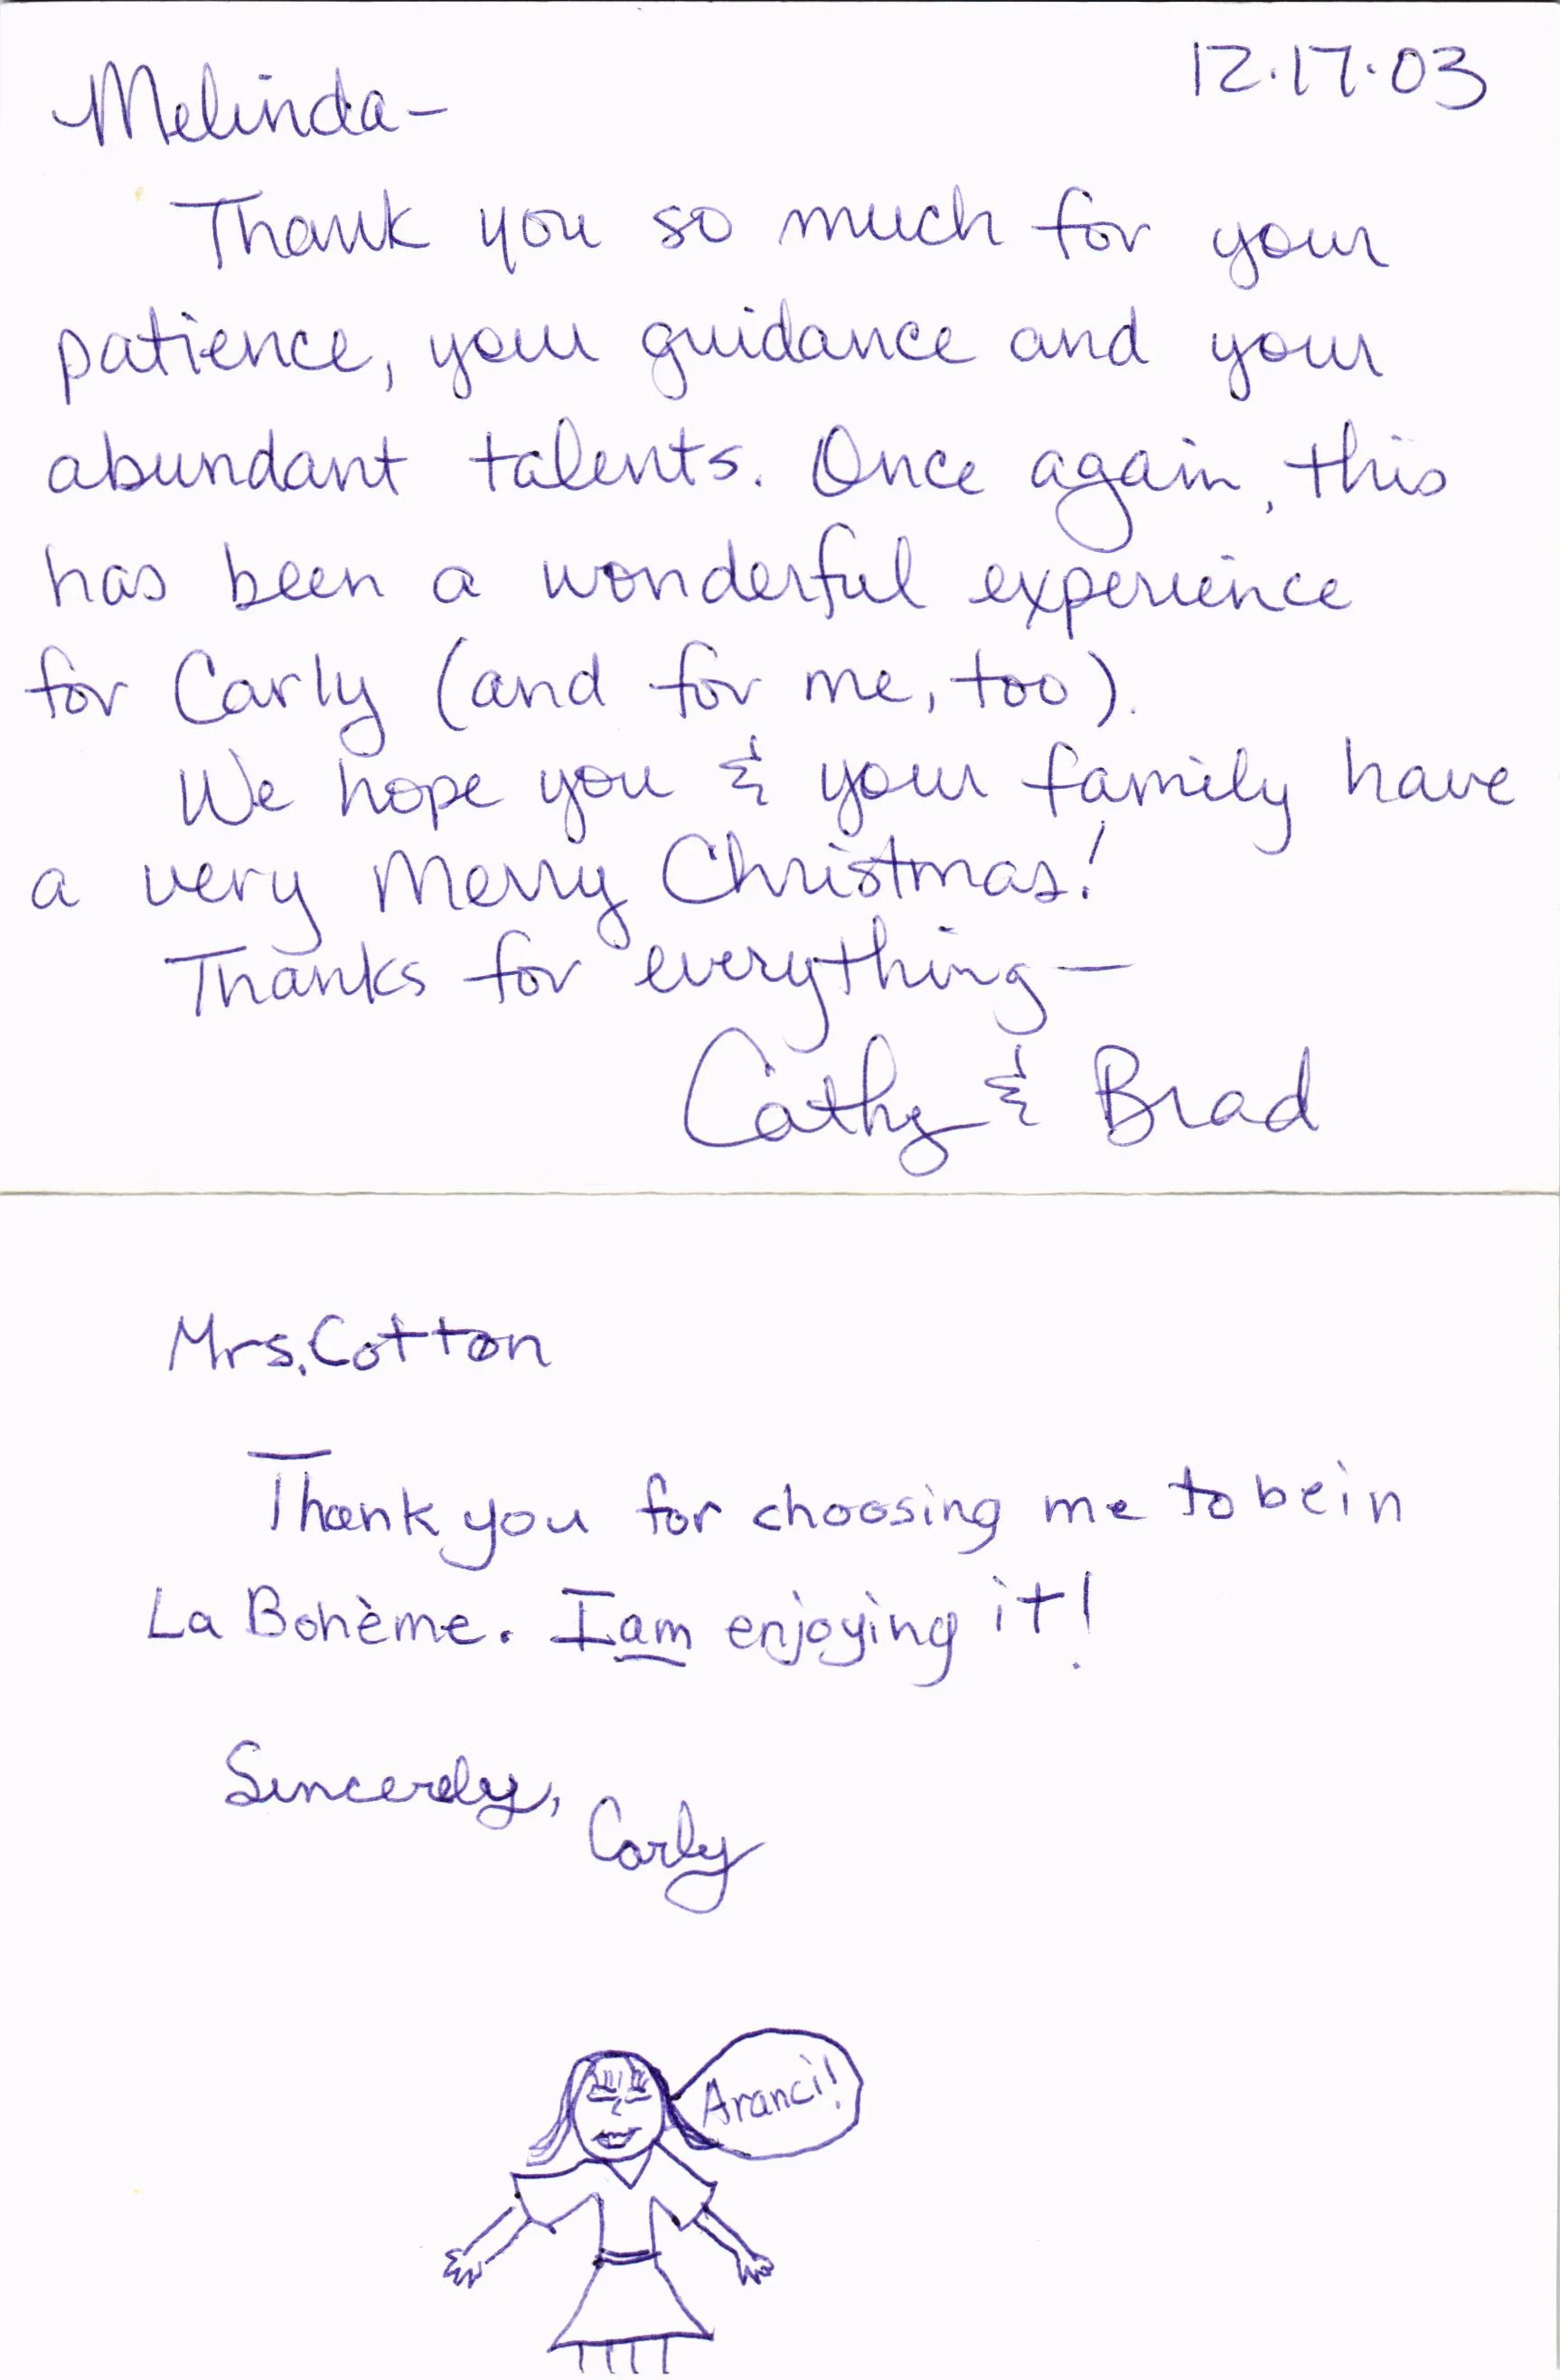 12.17.03
Melinda-
Thank you so much for your
patience, your guidance and your
abundant talents. Once again, this
has been a wonderful experience
for Carly (and for me, too).
We hope you & your family have
a very Merry Christmas!
Thanks for everything—
Cathy & Brad
Mrs. Cotton
Thank you for choosing me to be in
La Bohème. I am enjoying it!
Sincerely,
Carly
Aranci!